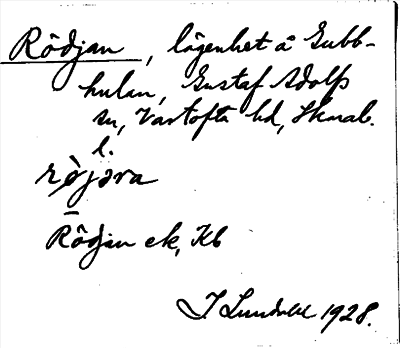 Rödjan, lägenhet å Gubb-
hulan, Gustaf Adolfs
sn, Vartofta hd, Skarab.
l.
rø̀jəra
Rödjan ek, Kb
J Lundahl 1928.